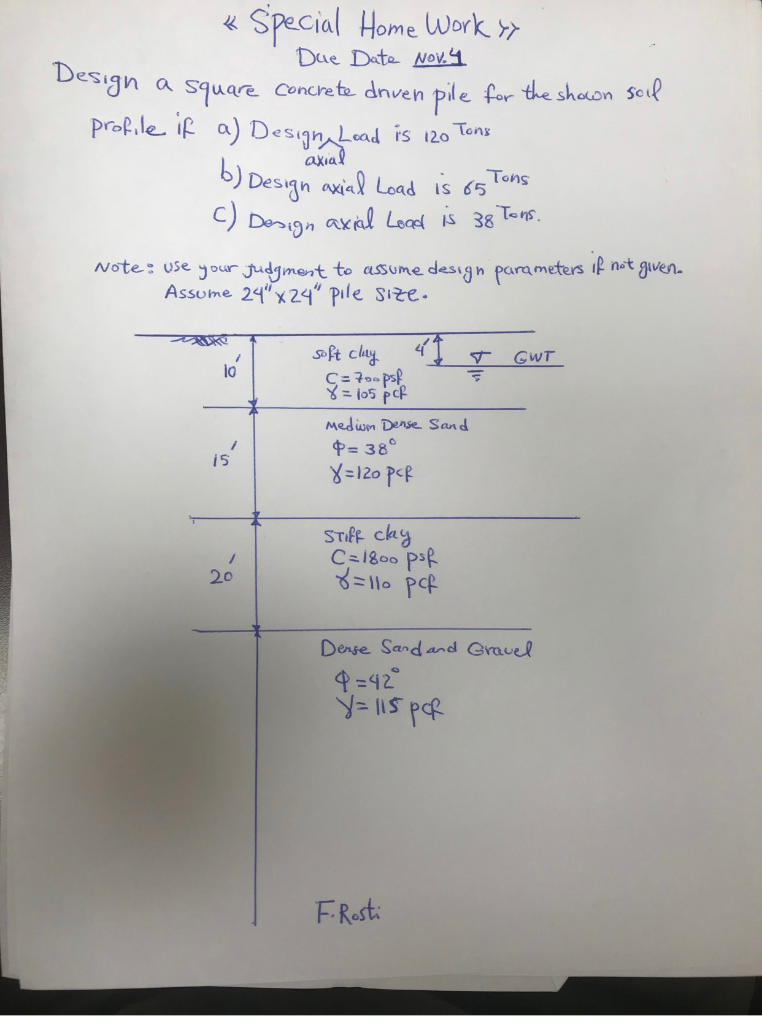 « Special Home Work »
Due Date Nov. 4
Design a square concrete driven pile for the shown soil
profile if a) Design axial Load is 120 Tons
b) Design axial Load is 65 Tons
c) Design axial Load is 38 Tons.
Note: Use your judgment to assume design parameters if not given.
Assume 24" x 24" pile size.
10'
soft clay
4'
GWT
C = 700 psf
γ = 105 pcf
15'
Medium Dense Sand
φ = 38°
γ = 120 pcf
20'
Stiff clay
C = 1800 psf
γ = 110 pcf
Dense Sand and Gravel
φ = 42°
γ = 115 pcf
F. Rosti